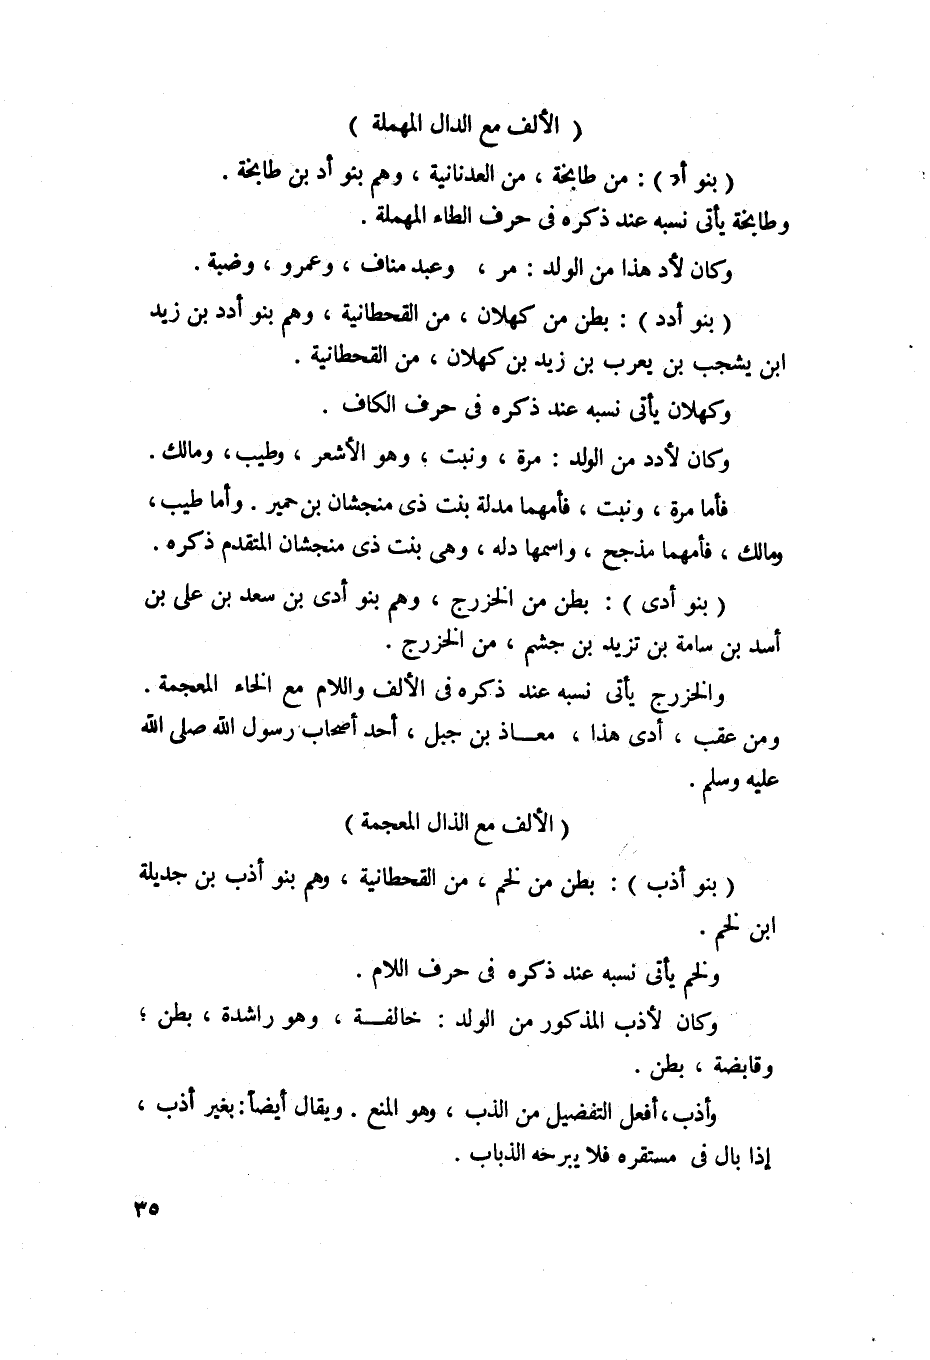 ( الألف مع الدال المهملة )
( بنو أد ) : من طابخة ، من العدنانية ، وهم بنو أد بن طابخة .
وطابخة يأتى نسبه عند ذكره فى حرف الطاء المهملة .
وكان لأد هذا من الولد : مر ، وعبد مناف ، وعمرو ، وضبة .
( بنو أدد ) : بطن من كهلان ، من القحطانية ، وهم بنو أدد بن زيد
ابن يشجب بن يعرب بن زيد بن كهلان ، من القحطانية .
وكهلان يأتى نسبه عند ذكره فى حرف الكاف .
وكان لأدد من الولد : مرة ، ونبت ، وهو الأشعر ، وطيب ، ومالك .
فأما مرة ، ونبت ، فأمهما مدلة بنت ذى منجشان بن حمير . وأما طيب ،
ومالك ، فأمهما مذجح ، واسمها دله ، وهى بنت ذى منجشان المتقدم ذكره .
( بنو أدى ) : بطن من الخزرج ، وهم بنو أدى بن سعد بن على بن
أسد بن سامة بن تزيد بن جشم ، من الخزرج .
والخزرج يأتى نسبه عند ذكره فى الألف واللام مع الخاء المعجمة .
ومن عقب ، أدى هذا ، معــاذ بن جبل ، أحد أصحاب رسول الله صلى الله
عليه وسلم .
( الألف مع الذال المعجمة )
( بنو أذب ) : بطن من لخم ، من القحطانية ، وهم بنو أذب بن جديلة
ابن لخم .
ولخم يأتى نسبه عند ذكره فى حرف اللام .
وكان لأذب المذكور من الولد : خالفــة ، وهو راشدة ، بطن ؛
وقابضة ، بطن .
وأذب ، أفعل التفضيل من الذب ، وهو المنع . ويقال أيضاً : بغير أذب ،
إذا بال فى مستقره فلا يبرحه الذباب .
٣٥